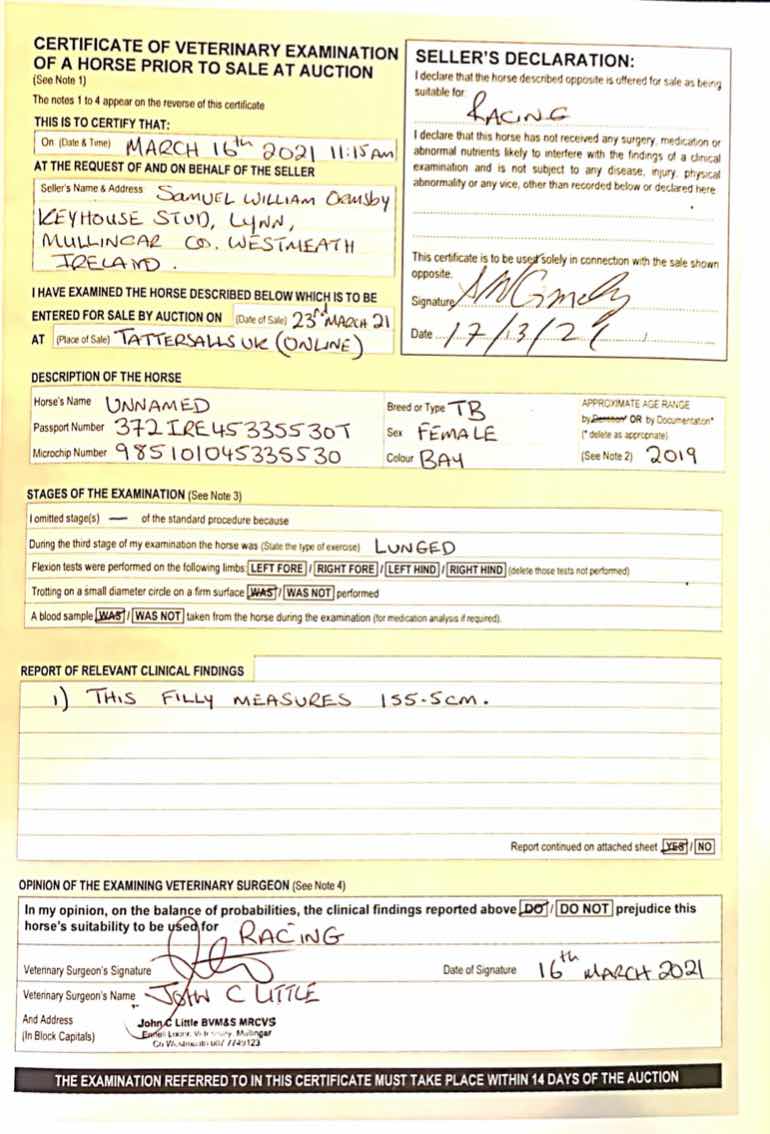 CERTIFICATE OF VETERINARY EXAMINATION
OF A HORSE PRIOR TO SALE AT AUCTION
(See Note 1)
The notes 1 to 4 appear on the reverse of this certificate
THIS IS TO CERTIFY THAT:
On (Date & Time) MARCH 16th 2021 11:15 AM
AT THE REQUEST OF AND ON BEHALF OF THE SELLER
Seller's Name & Address SAMUEL WILLIAM Ormsby
KEYHOUSE STUD, LYNN,
MULLINGAR CO. WESTMEATH
IRELAND.
I HAVE EXAMINED THE HORSE DESCRIBED BELOW WHICH IS TO BE
ENTERED FOR SALE BY AUCTION ON (Date of Sale) 23rd MARCH 21
AT (Place of Sale) TATTERSALLS UK (ONLINE)
SELLER'S DECLARATION:
I declare that the horse described opposite is offered for sale as being
suitable for
RACING
I declare that this horse has not received any surgery, medication or
abnormal nutrients likely to interfere with the findings of a clinical
examination and is not subject to any disease, injury, physical
abnormality or any vice, other than recorded below or declared here
This certificate is to be used solely in connection with the sale shown
opposite.
Signature
Date 17/3/21
DESCRIPTION OF THE HORSE
Horse's Name UNNAMED
Passport Number 372IRE45335530T
Microchip Number 985101045335530
Breed or Type TB
Sex FEMALE
Colour BAY
APPROXIMATE AGE RANGE
by Dentition* OR by Documentation*
(* delete as appropriate)
(See Note 2) 2019
STAGES OF THE EXAMINATION (See Note 3)
I omitted stage(s) — of the standard procedure because
During the third stage of my examination the horse was (State the type of exercise) LUNGED
Flexion tests were performed on the following limbs LEFT FORE / RIGHT FORE / LEFT HIND / RIGHT HIND (delete those tests not performed)
Trotting on a small diameter circle on a firm surface WAS / WAS NOT performed
A blood sample WAS / WAS NOT taken from the horse during the examination (for medication analysis if required).
REPORT OF RELEVANT CLINICAL FINDINGS
1) THIS FILLY MEASURES 155.5cm.
Report continued on attached sheet YES / NO
OPINION OF THE EXAMINING VETERINARY SURGEON (See Note 4)
In my opinion, on the balance of probabilities, the clinical findings reported above DO / DO NOT prejudice this
horse's suitability to be used for RACING
Veterinary Surgeon's Signature
Date of Signature 16th MARCH 2021
Veterinary Surgeon's Name JOHN C LITTLE
And Address
(In Block Capitals)
John C Little BVM&S MRCVS
Mullingar
Co Westmeath 087 7749123
THE EXAMINATION REFERRED TO IN THIS CERTIFICATE MUST TAKE PLACE WITHIN 14 DAYS OF THE AUCTION